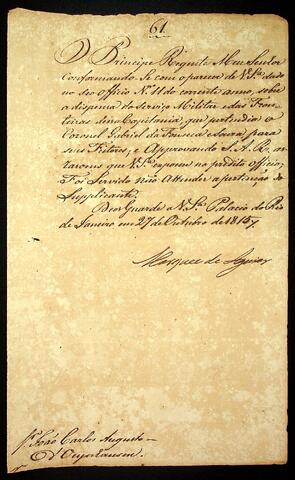 61
O Principe Regente Meu Senhor
Conformando-Se com o parecer de V.Sª dado
no seo Officio Nº 11 do corrente anno, sobre
a dispensa do Serviço Militar e das Fron-
teiras dessa Capitania, que pertendia o
Coronel Gabriel da Fonseca e Souza para
seus Feitores, e Approvando S. A. R. as
razoens que V.Sª expoem no predito Officio,
Foi Servido não Attender a pertenção do
Supplicante.
Deos Guarde a V.Sª Palacio do Rio
de Janeiro em 27 de Outubro de 1815
Marquez de Aguiar
Sr. João Carlos Augusto
d'Oeynhausen